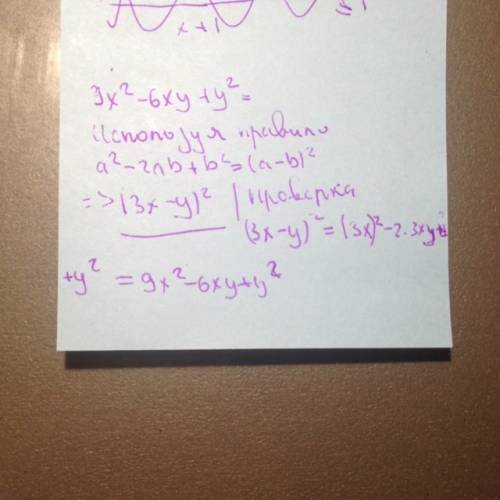 x+1
9x²-6xy+y²=
Используя правило
a²-2ab+b²=(a-b)²
=>(3x-y)² | Проверка
(3x-y)²=(3x)²-2·3xy+
+y² = 9x²-6xy+y²